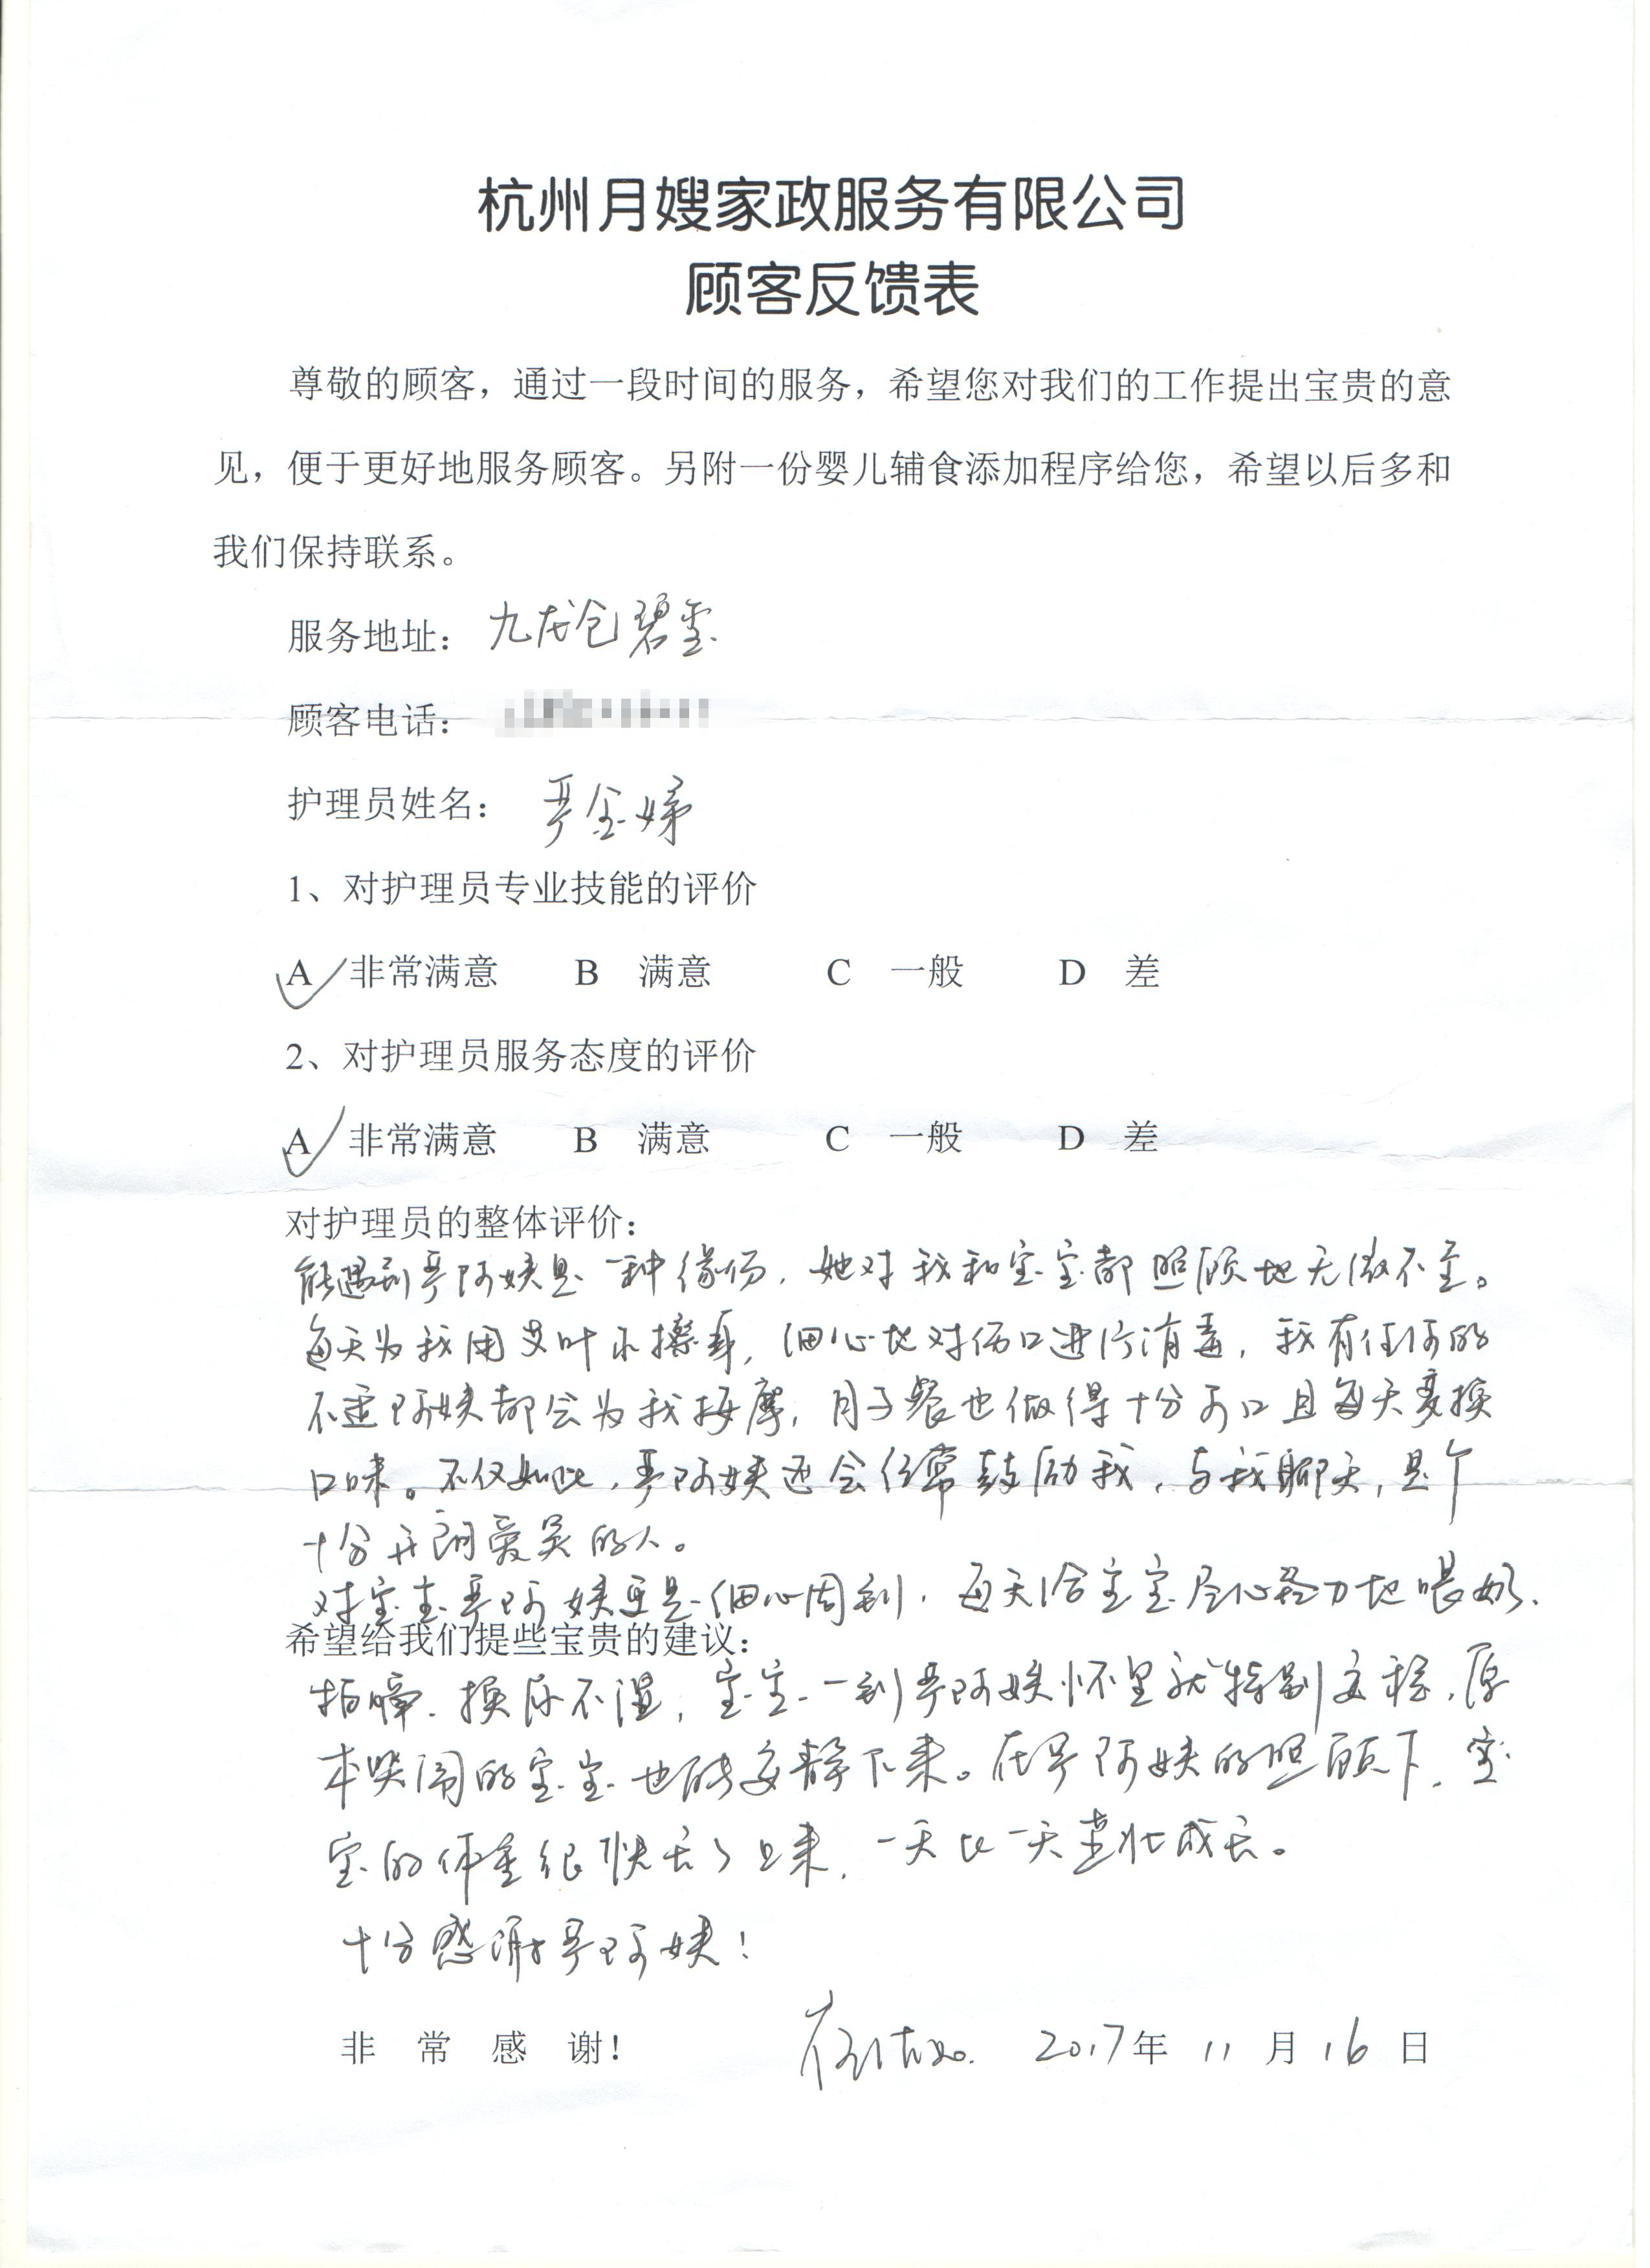 杭州月嫂家政服务有限公司
顾客反馈表
尊敬的顾客，通过一段时间的服务，希望您对我们的工作提出宝贵的意
见，便于更好地服务顾客。另附一份婴儿辅食添加程序给您，希望以后多和
我们保持联系。
服务地址：九龙仓碧玺
顾客电话：
护理员姓名：严金娣
1、对护理员专业技能的评价
A 非常满意 B 满意 C 一般 D 差
2、对护理员服务态度的评价
A 非常满意 B 满意 C 一般 D 差
对护理员的整体评价：
能遇到严阿姨是一种缘份，她对我和宝宝都照顾地无微不至。
每天为我用艾叶水擦身，细心地对伤口进行消毒，我有任何的
不适阿姨都会为我按摩，月子餐也做得十分可口且每天变换
口味。不仅如此，严阿姨还会经常鼓励我，与我聊天，是个
十分开朗爱笑的人。
对宝宝严阿姨更是细心周到，每天给宝宝尽心尽力地喂奶、
希望给我们提些宝贵的建议：
拍嗝、换尿不湿，宝宝一到严阿姨怀里就特别安稳，原
本哭闹的宝宝也能安静下来。在严阿姨的照顾下，宝
宝的体重很快长了上来，一天比一天茁壮成长。
十分感谢严阿姨！
非 常 感 谢！ 2017年 11 月 16 日